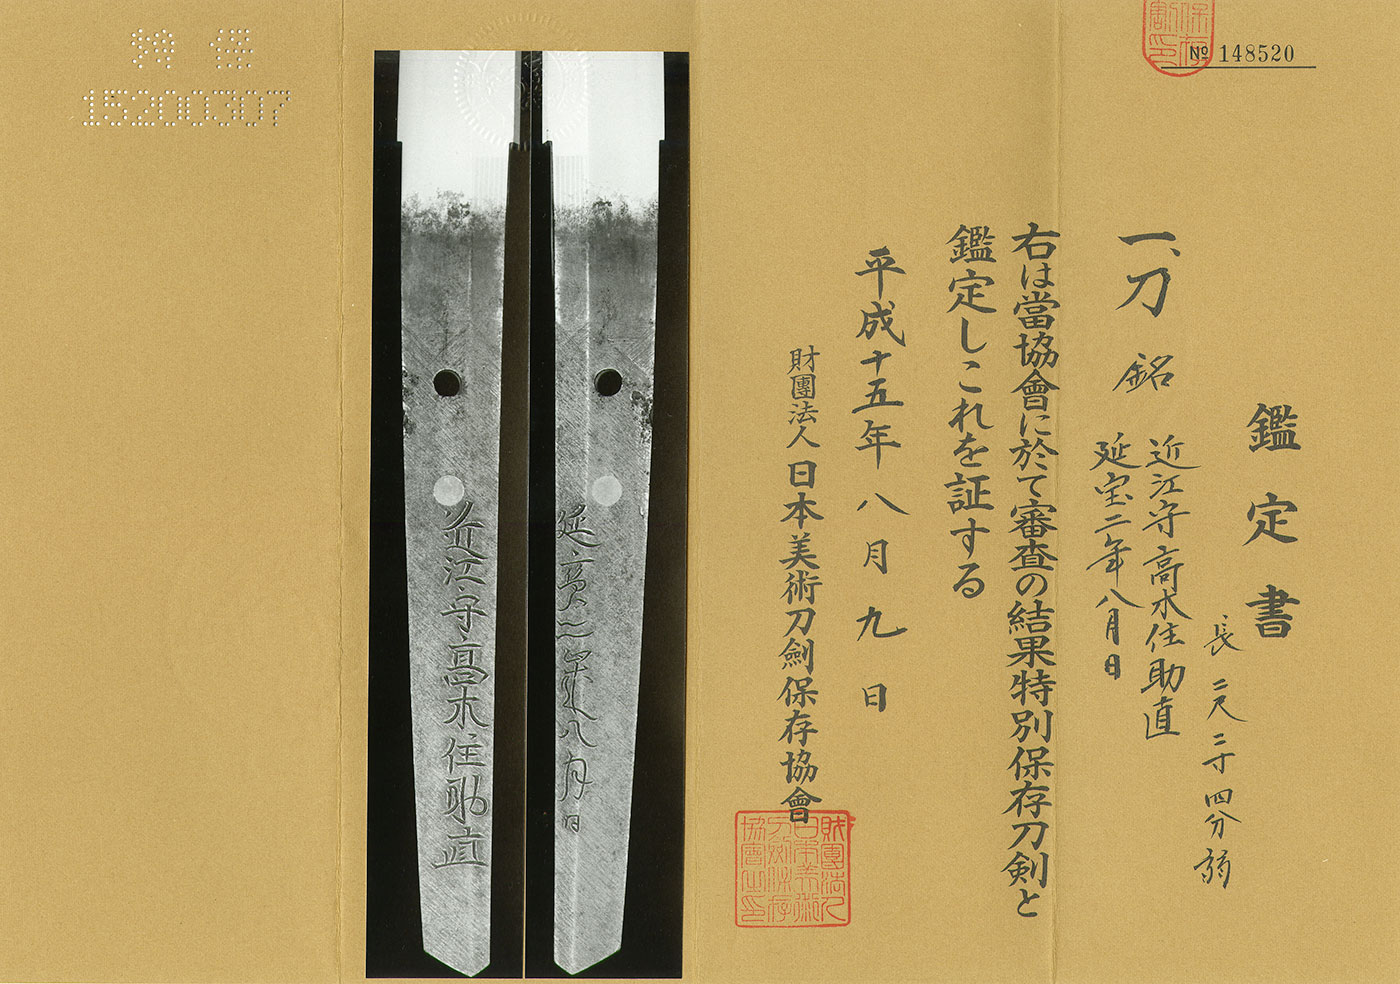 保存
割印
№ 148520
鑑定書
長 二尺二寸四分弱
一、刀 銘 近江守高木住助直
延宝二年八月日
右は當協會に於て審査の結果特別保存刀剣と
鑑定しこれを証する
平成十五年八月九日
財團法人日本美術刀劍保存協會
財團法人
日本美術
刀劍保存
協會之印
延寳二年八月日
近江守高木住助直
特 保
15200307